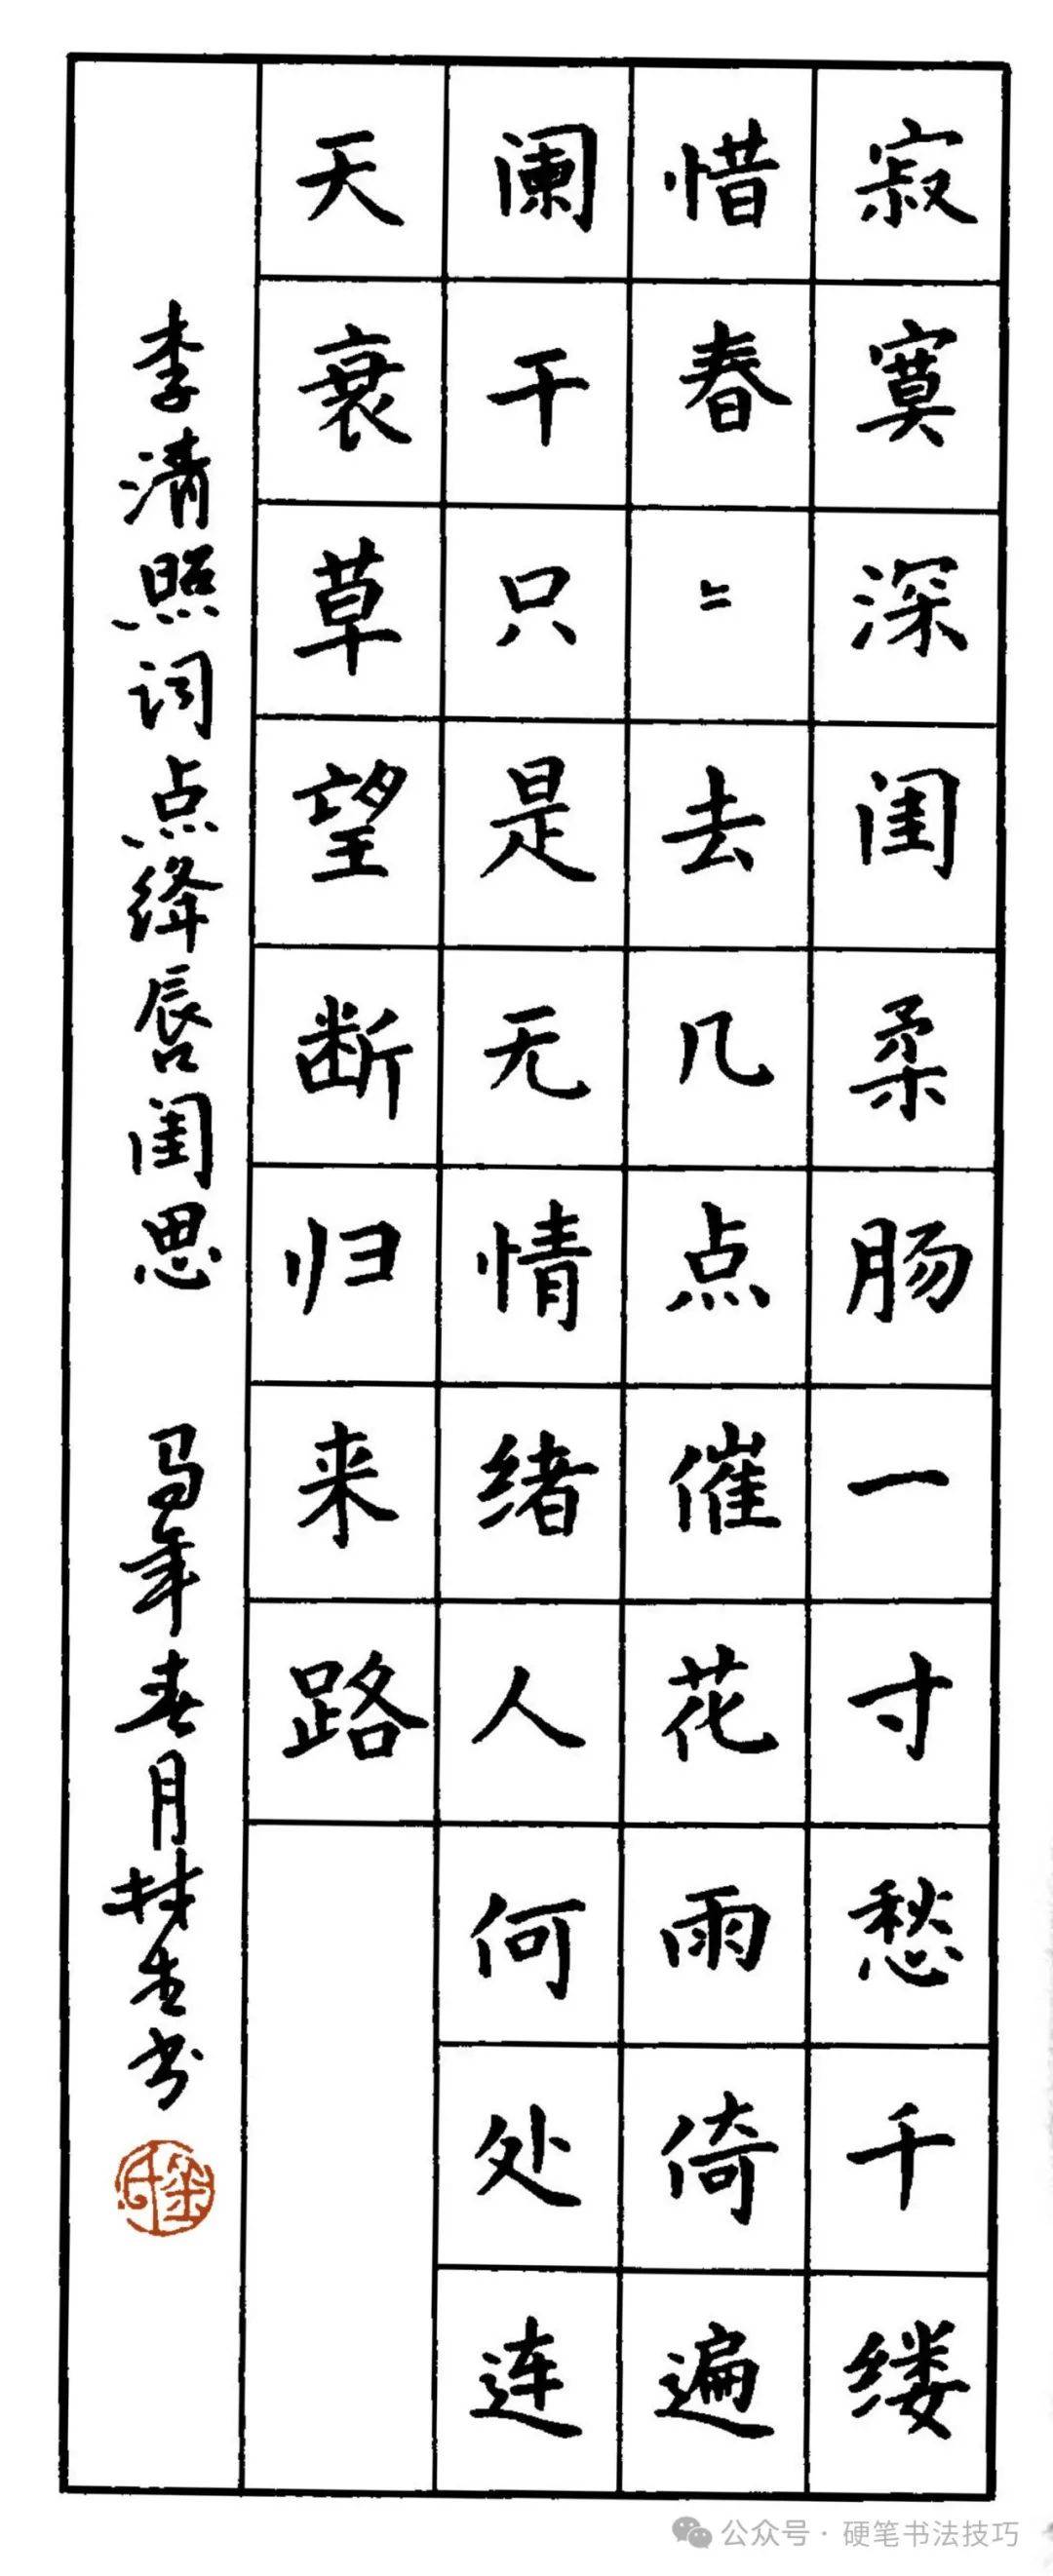 寂寞深闺柔肠一寸愁千缕
惜春〻去几点催花雨倚遍
阑干只是无情绪人何处连
天衰草望断归来路
李清照词点绛唇闺思 马年春月林生书
公众号 · 硬笔书法技巧